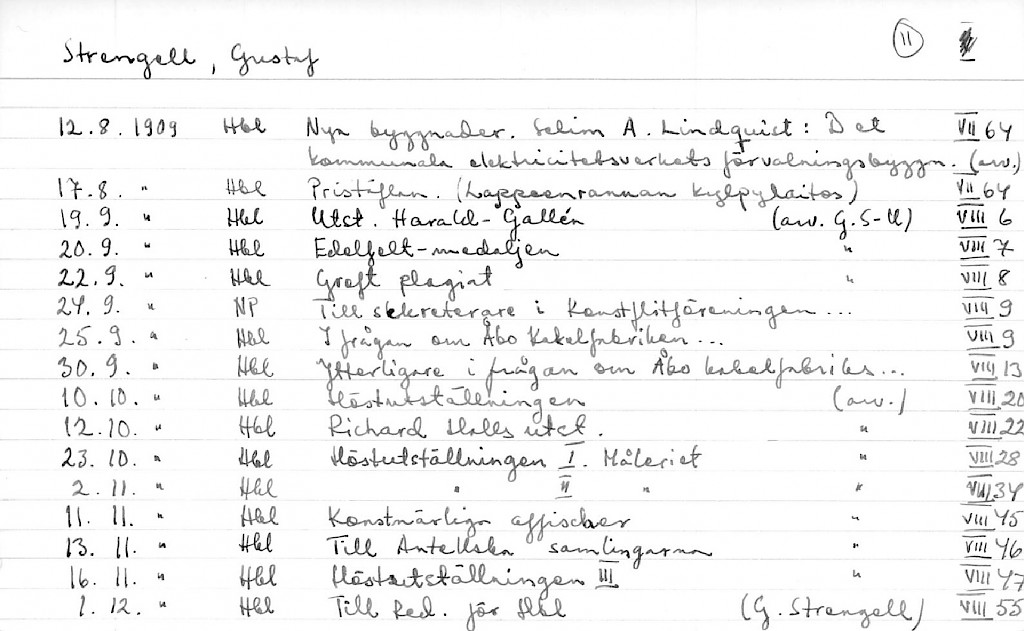 11
Strengell, Gustaf
12.8. 1909 Hbl Nya byggnader. Selim A. Lindquist: Det VII 64
kommunala elektricitetsverkets förvaltningsbyggn. (arv.)
17.8. " Hbl Pristäflan. (Lappeenrannan kylpylaitos) VII 64
19.9. " Hbl Utst. Harald-Gallén (arv. G.S-ll) VIII 6
20.9. " Hbl Edelfelt-medaljen " VIII 7
22.9. " Hbl Groft plagiat " VIII 8
24.9. " NP Till sekreterare i Konstflitföreningen... VIII 9
25.9. " Hbl I frågan om Åbo Kakelfabriken... VIII 9
30.9. " Hbl Ytterligare i frågan om Åbo kakelfabriks... VIII 13
10.10. " Hbl Höstutställningen (arv.) VIII 20
12.10. " Hbl Richard Halls utst. " VIII 22
23.10. " Hbl Höstutställningen I. Måleriet " VIII 28
2.11. " Hbl " II " " VIII 34
11.11. " Hbl Konstnärliga affischer " VIII 45
13.11. " Hbl Till Antellska samlingarna " VIII 46
16.11. " Hbl Höstutställningen III " VIII 47
1.12. " Hbl Till Red. för Hbl (G. Strengell) VIII 55